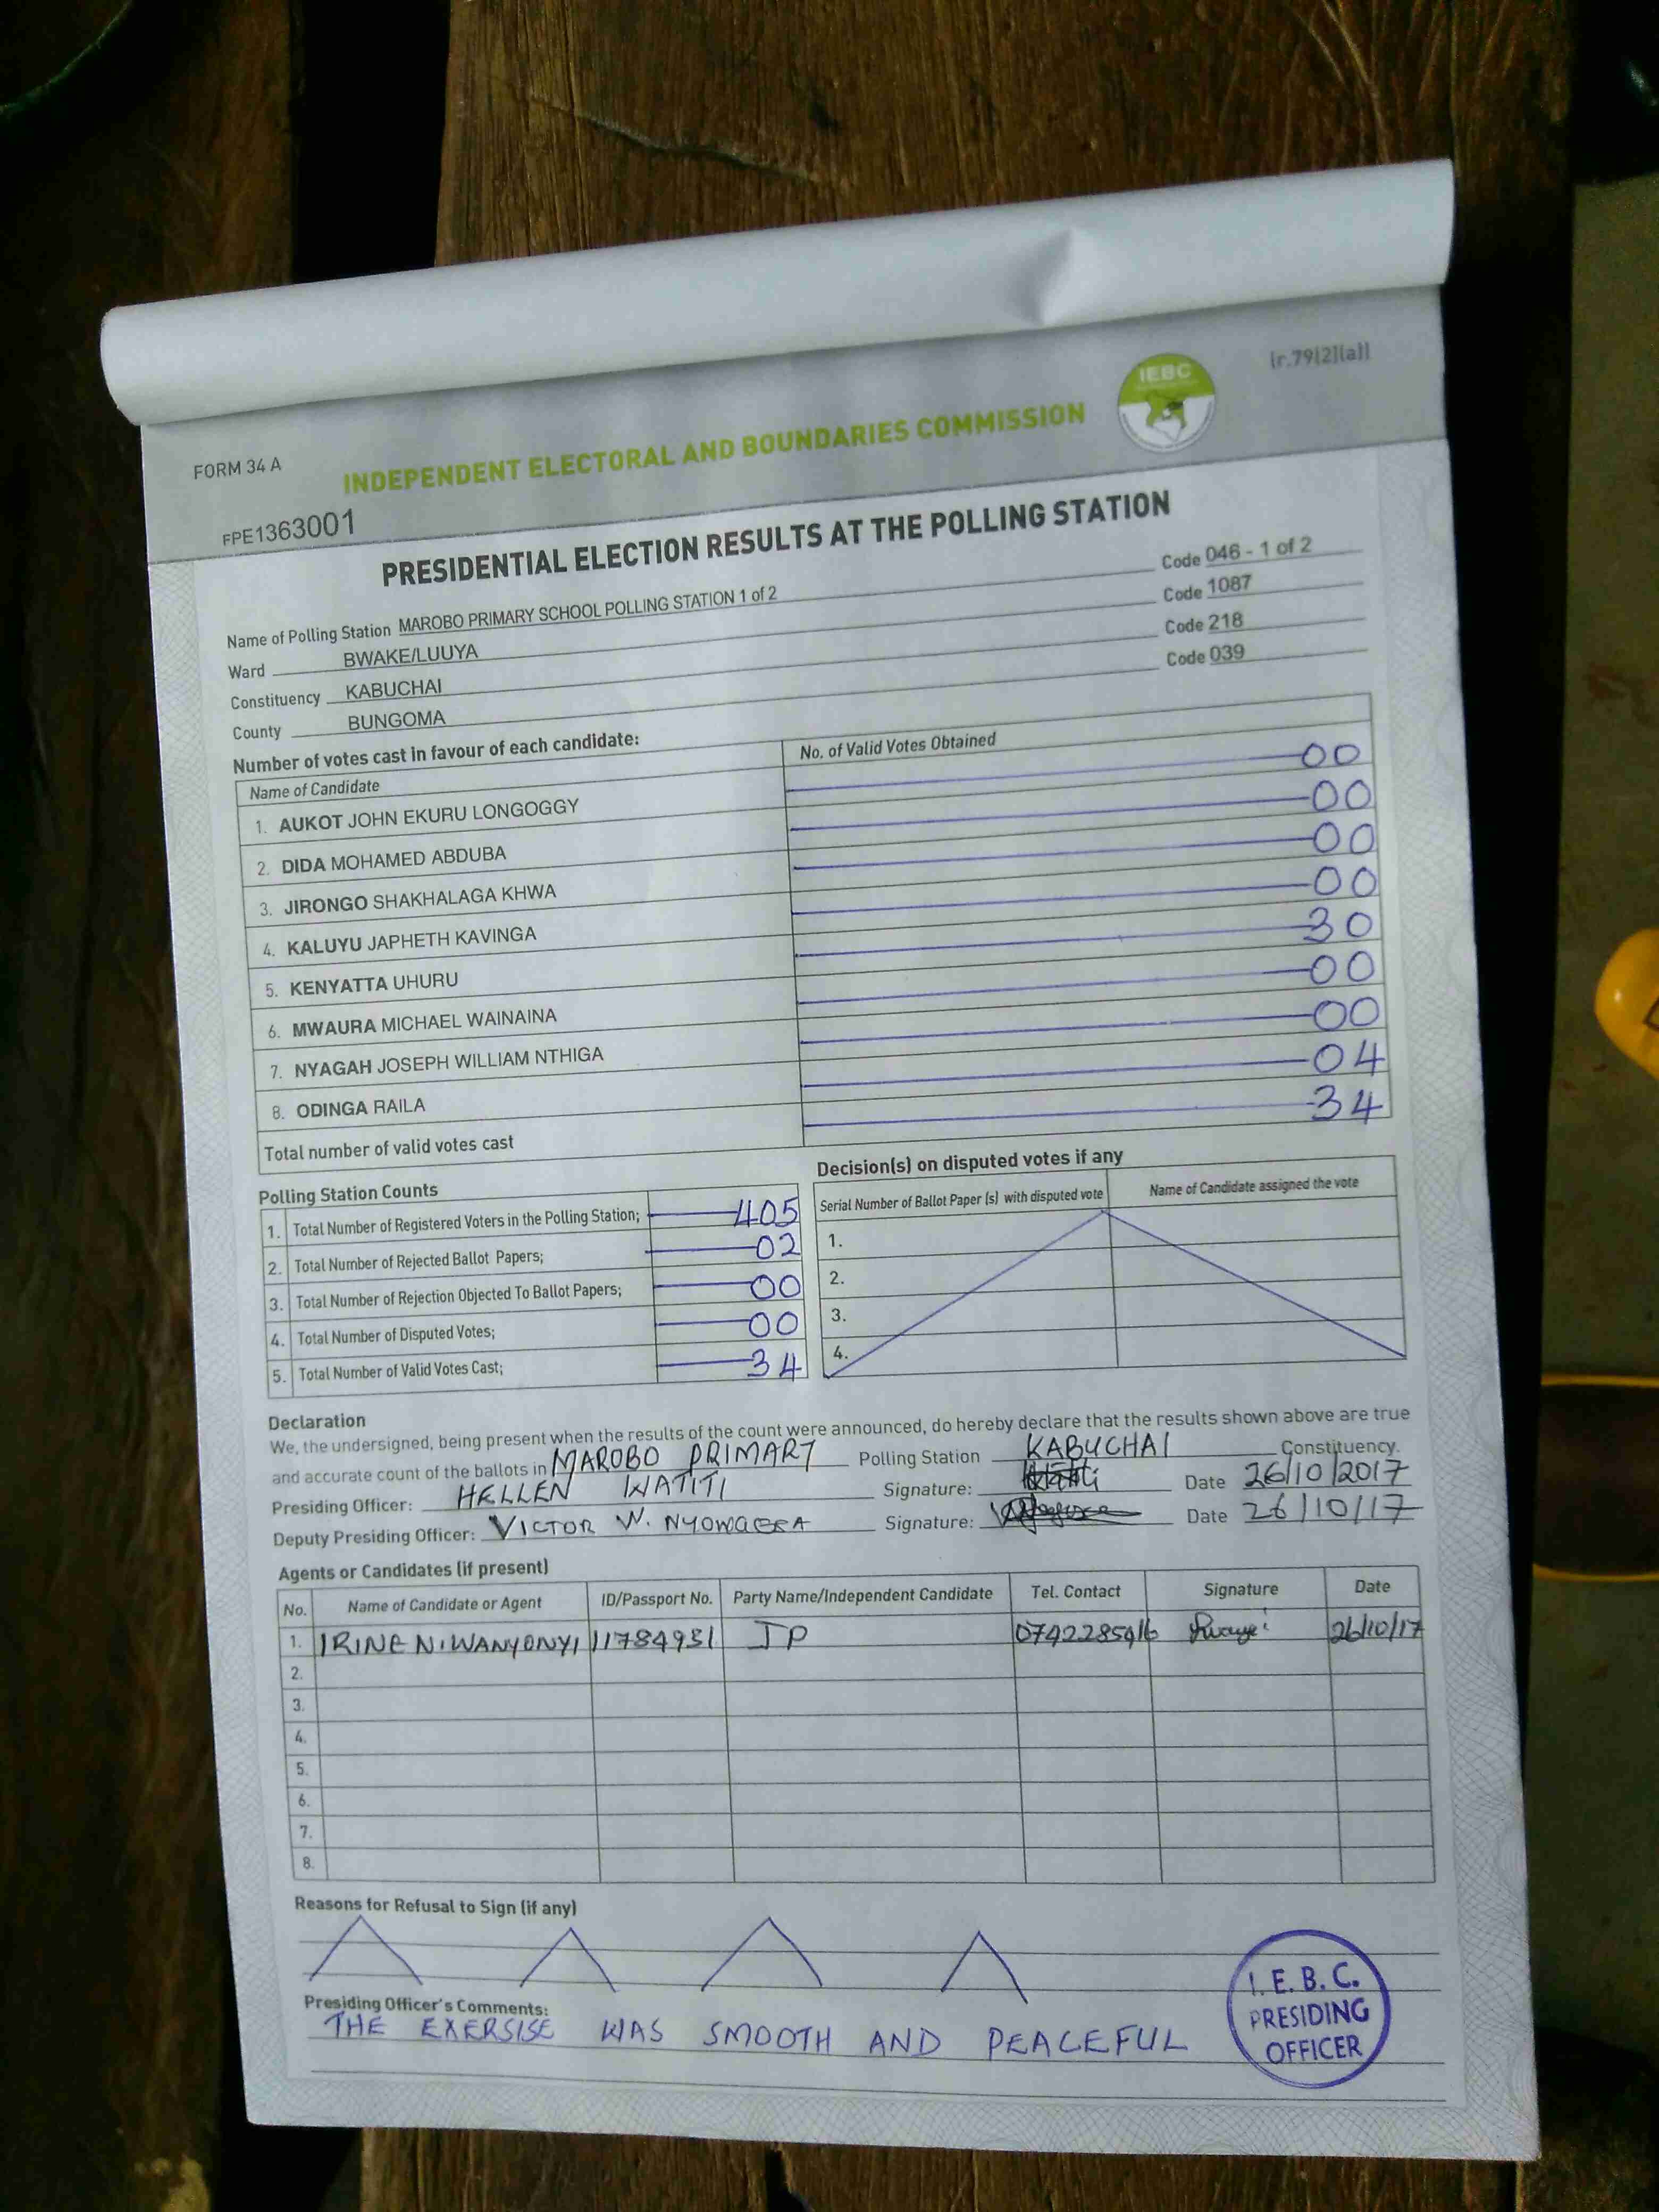 (r.79(2)(a))
IEBC
FORM 34 A
INDEPENDENT ELECTORAL AND BOUNDARIES COMMISSION
FPE1363001
PRESIDENTIAL ELECTION RESULTS AT THE POLLING STATION
Name of Polling Station MAROBO PRIMARY SCHOOL POLLING STATION 1 of 2 Code 046 - 1 of 2
Ward BWAKE/LUUYA Code 1087
Constituency KABUCHAI Code 218
County BUNGOMA Code 039
Number of votes cast in favour of each candidate:
Name of Candidate No. of Valid Votes Obtained
1. AUKOT JOHN EKURU LONGOGGY 00
2. DIDA MOHAMED ABDUBA 00
3. JIRONGO SHAKHALAGA KHWA 00
4. KALUYU JAPHETH KAVINGA 00
5. KENYATTA UHURU 30
6. MWAURA MICHAEL WAINAINA 00
7. NYAGAH JOSEPH WILLIAM NTHIGA 00
8. ODINGA RAILA 04
Total number of valid votes cast 34
Polling Station Counts
1. Total Number of Registered Voters in the Polling Station; 405
2. Total Number of Rejected Ballot Papers; 02
3. Total Number of Rejection Objected To Ballot Papers; 00
4. Total Number of Disputed Votes; 00
5. Total Number of Valid Votes Cast; 34
Decision(s) on disputed votes if any
Serial Number of Ballot Paper (s) with disputed vote Name of Candidate assigned the vote
1.
2.
3.
4.
Declaration
We, the undersigned, being present when the results of the count were announced, do hereby declare that the results shown above are true
and accurate count of the ballots in MAROBO PRIMARY Polling Station KABUCHAI Constituency.
Presiding Officer: HELLEN WATITI Signature: Date 26/10/2017
Deputy Presiding Officer: VICTOR W. Signature: Date 26/10/17
Agents or Candidates (if present)
No. Name of Candidate or Agent ID/Passport No. Party Name/Independent Candidate Tel. Contact Signature Date
1. IRINE N. WANYONYI 11784931 JP 0742285416 26/10/17
2.
3.
4.
5.
6.
7.
8.
Reasons for Refusal to Sign (if any)
Presiding Officer's Comments:
THE EXERSISE WAS SMOOTH AND PEACEFUL
I.E.B.C.
PRESIDING
OFFICER